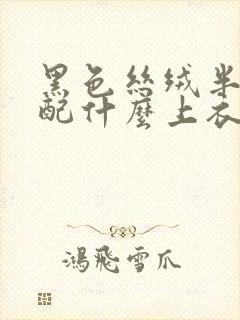 黑色絲絨半
配什麼上衣
鴻飛雪爪